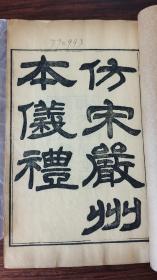 仿宋嚴州
本儀禮